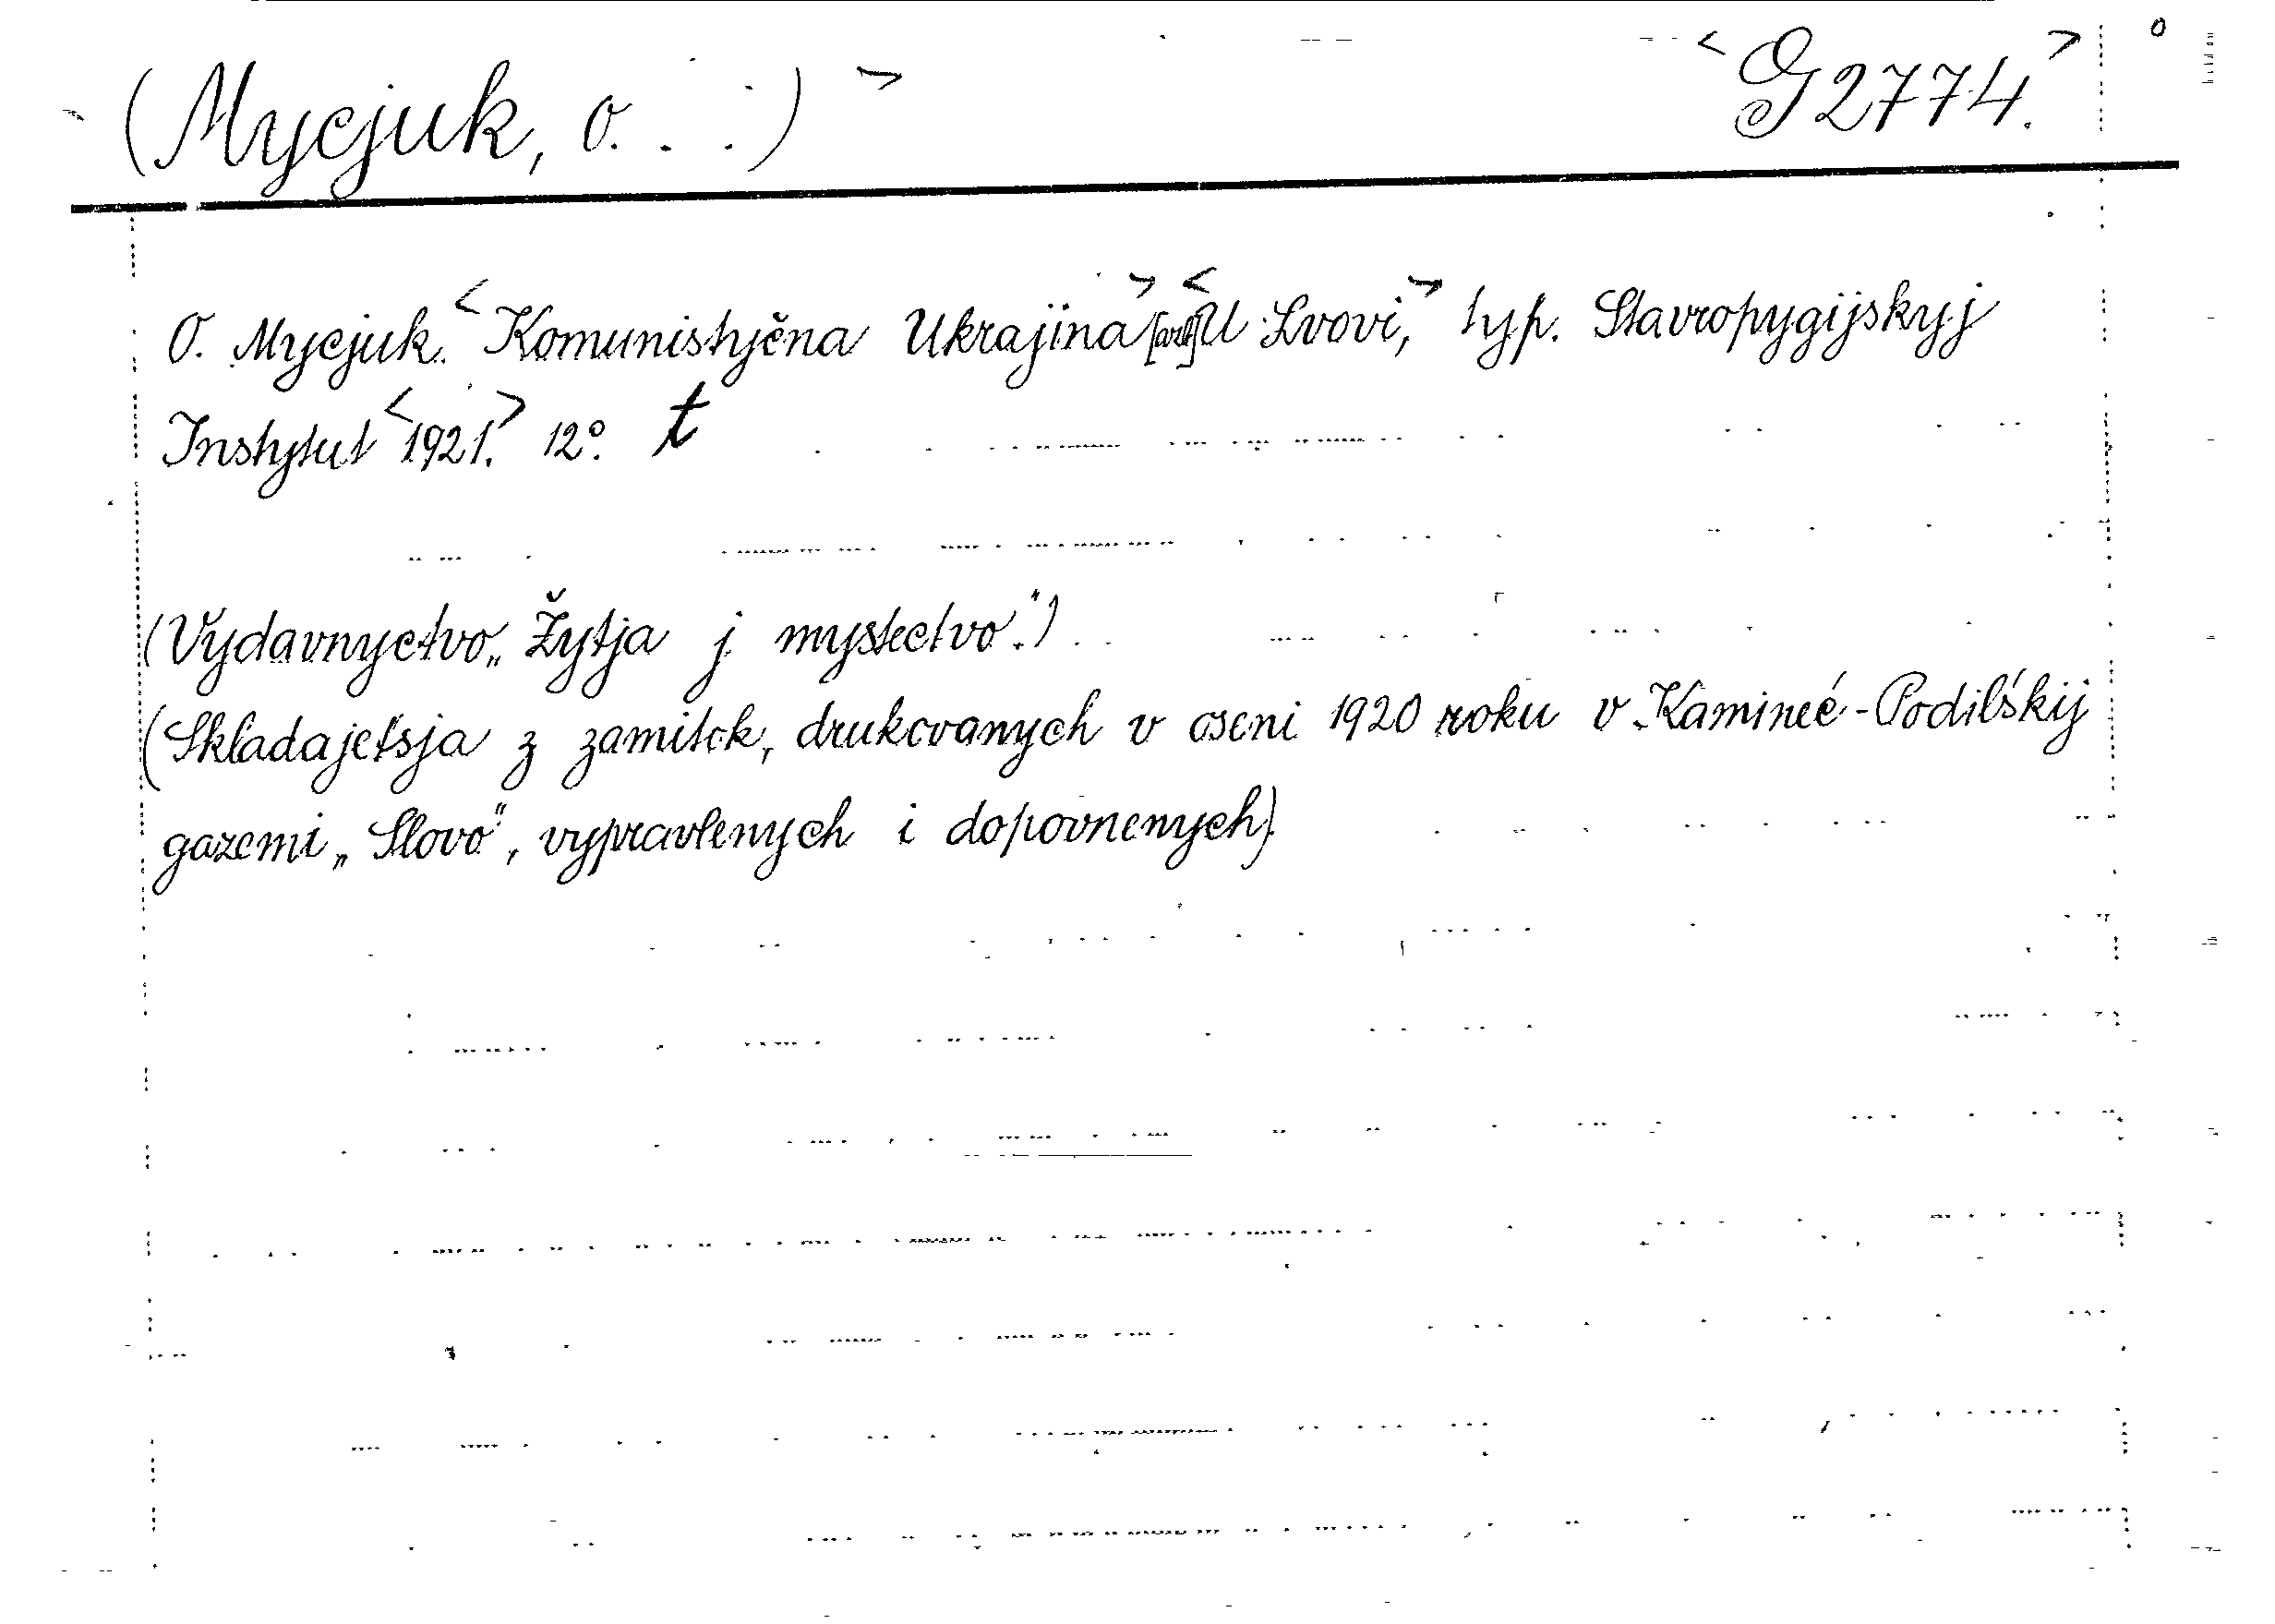 (Mycjuk, O. . .) >
< G 2774. >
O. Mycjuk. < Komunistyčna Ukrajina > < U Lvovi, > typ. Stavropygijskyj
Instytut < 1921. > 12°. t
(Vydavnyctvo „Žytja j mystectvo“.)
(Skladajet́sja z zamitok, drukovanych v oseni 1920 roku v Kamineć-Podilśkij
gazemi „Slovo“, vypravlenych i dopovnenych).